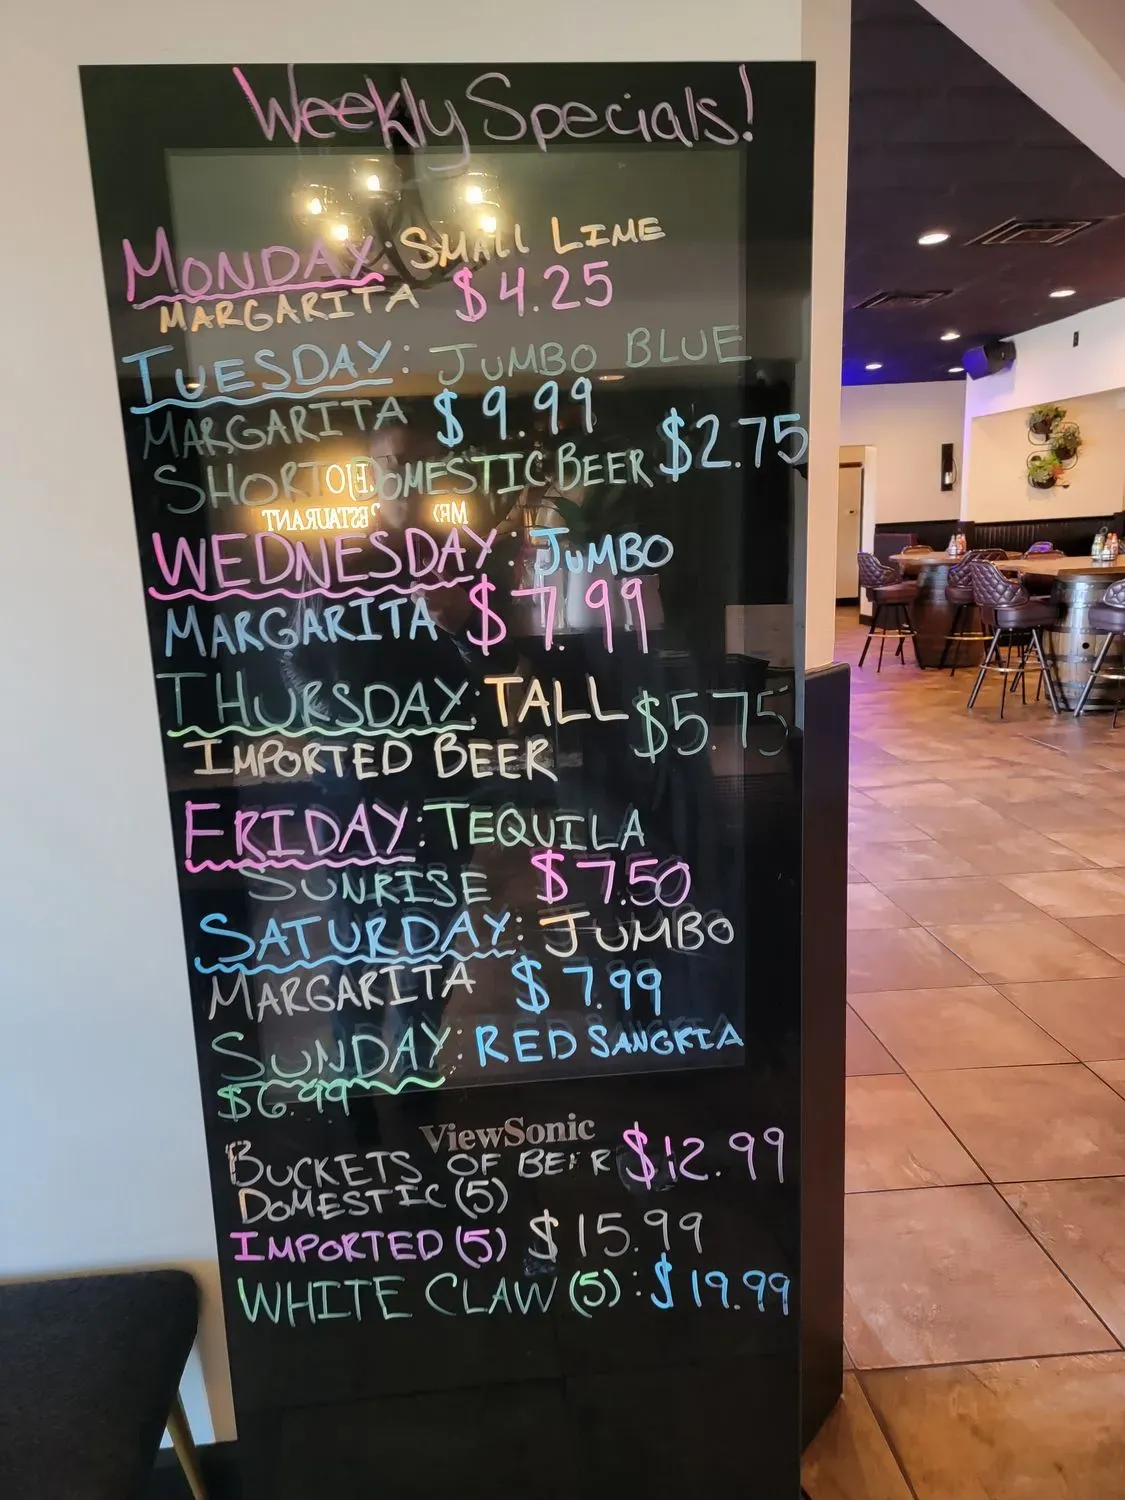 Weekly Specials!
MONDAY: SMALL LIME
MARGARITA $4.25
TUESDAY: JUMBO BLUE
MARGARITA $9.99
SHORT DOMESTIC BEER $2.75
WEDNESDAY: JUMBO
MARGARITA $7.99
THURSDAY: TALL
IMPORTED BEER $5.75
FRIDAY: TEQUILA
SUNRISE $7.50
SATURDAY: JUMBO
MARGARITA $7.99
SUNDAY: RED SANGRIA
$6.99
ViewSonic
BUCKETS OF BEER $12.99
DOMESTIC (5)
IMPORTED (5) $15.99
WHITE CLAW (5): $19.99